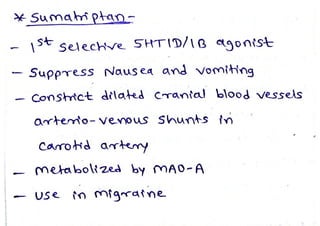 * Sumatriptan -
- 1st Selective 5HT1D/1B agonist
- Suppress Nausea and vomiting
- Constrict dilated cranial blood vessels
arterio-venous shunts in
carotid artery
- metabolized by MAO-A
- use in migraine